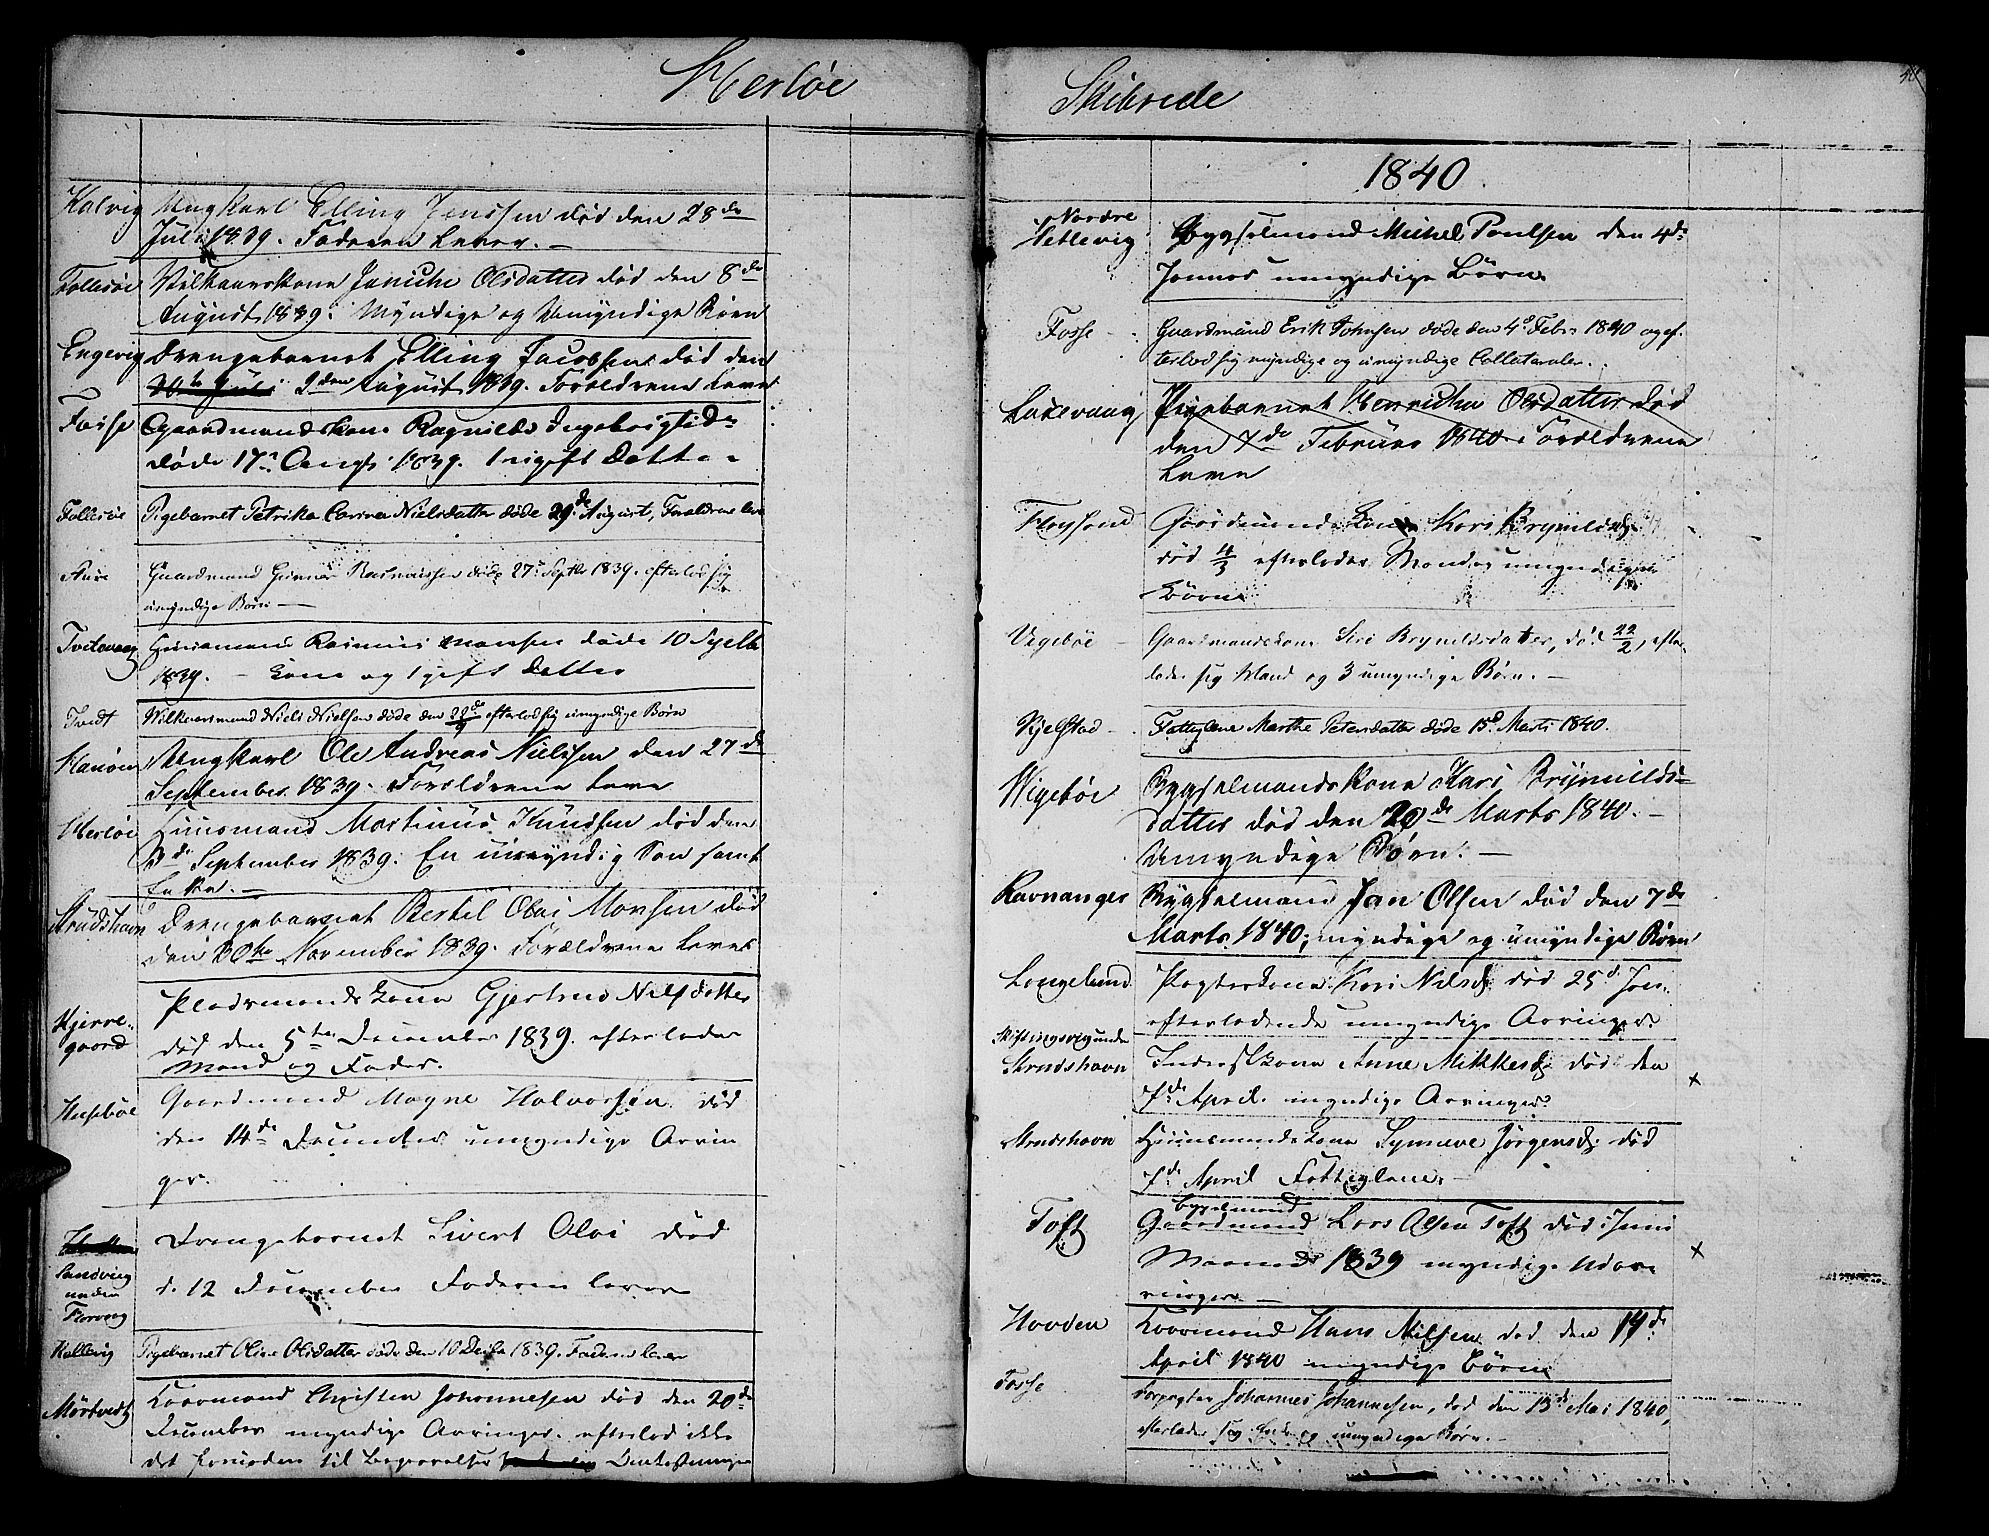 Herløe
Kalvig Ungkarl Elling Jenssen død den 28de
Juli 1839. Faderen Lever. —
Follesøe Vilkaarskone Janiche Olsdatter død den 8de
August 1839. Myndige og Umyndige Børn
Engevig Drengebarnet Elling Jacobsen død den
2den August 1839. Foreldrene Leve
Fosse Gaardmandskone Ragnilde Ingebrigtsd.
døde 17de Aug. 1839. 1 ugift Datter
Follesøe Pigebarnet Petrike Carina Nielsdatter døde 29de August, Foreldrene leve
Gaardmand Gunnar Rasmussen døde 27de Septbr 1839. efterlod sig
umyndige Børn —
Tveitevaag Huusmand Rasmus Monsen døde 10 Septb
1839. — Kone og 1 gift Datter
Tvedt Wilkaarsmand Niels Nielsen døde den 22de/9 efterlod sig umyndige Børn
Hanøen Ungkarl Ole Andreas Nielsen den 27de
September 1839. Foreldrene Leve
Herløe Huusmand Martinus Knudsen død den
3de September 1839. En umyndig Søn samt
Enke. —
Strudshavn Drengebarnet Bertel Olai Monsen død
den 30te November 1839. Forældrene Lever
Kjerre-
gaard
Pladsmandskone Gjertrud Nilsdatter
død den 5te December 1839. efterlader
Mand og Fader.
Husebøe Gaardmand Magne Halvorsen død
den 14de December umyndige Arvin
ger.
Sandvig
under
Florvog
Drengebarnet Sivert Olai død
d. 12 December Faderen lever
Kallevig Pigebarnet Oline Olsdatter døde den 10 Decbr 1839. Faderen lever
Mørtvedt Kaarmand Christen Johannesen død den 20de
December myndige Arvinger. efterlod ikke
det fornødne til Begravelses Omkostninger
Skibrede
40
1840
Nordre
Hetlevig Bygselmand Michel Poulsen den 4de
Januar umyndige Børn
Fosse Gaardmand Erik Johnsen døde den 4de Febr. 1840 og ef-
terlod sig myndige og umyndige Collateraler.
Laxevaag Pigebarnet Henriche Olsdatter død
den 7de Februar 1840. Foreldrene
Leve
Fløysand Gaardmands Kone Kari Brynildsd.
død 4/3 efterlader Mand og umyndige
Børn
Vigebøe Gaardmandskone Siri Brynildsdatter, død 22/2, efter-
lader sig Mand og 3 umyndige Børn. —
Kjelstad Fattiglem Marthe Petersdatter døde 15de Marts 1840.
Wigebøe Bygselmandskone Kari Brynilds-
datter død den 20de Marts 1840. —
Umyndige Børn. —
Ravnanger Bygselmand Jan Olsen død den 7de
Marts 1840; myndige og umyndige Børn
Langelund Pagterkone Kari Nilsd. død 25de Jan.
efterladende umyndige Arvinger.
under
Strudshavn Anne Mikkelsd. død den
7de April. myndige Arvinger. ×
Strudshavn Huusmandskone Synneve Jørgensd. død
7de April Fattiglem. —
Toft Bygselmand
Gaardmand Lars Olsen Toft død i Juni
Maaned 1839 myndige Udar- ×
vinger —
Hovden Kaarmand Hans Nilsen død den 14de
April 1840 myndige Børn
Fosse Forpagter Johannes Johannesen, død den 13de Mai 1840,
efterlader sig Enke og umyndige Børn. —